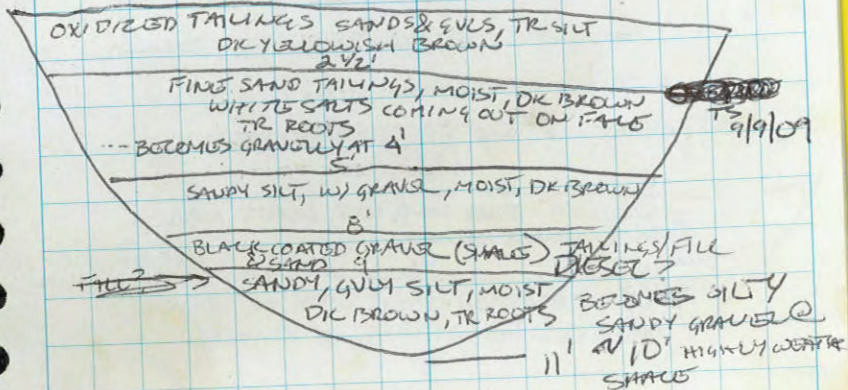 OXIDIZED TAILINGS SANDS & GVLS, TR SILT
DK YELLOWISH BROWN
2 1/2'
FINE SAND TAILINGS, MOIST, DK BROWN
WHITE SALTS COMING OUT ON FACE
TR ROOTS
TS
9/9/09
--- BECOMES GRAVELLY AT 4'
5'
SANDY SILT, W/ GRAVEL, MOIST, DK BROWN
8'
BLACK COATED GRAVEL (SHALE) TAILINGS/FILL
& SAND 9'
DIESEL?
FILL?
SANDY, GVLY SILT, MOIST
DK BROWN, TR ROOTS
BECOMES SILTY
SANDY GRAVEL @
~10' HIGHLY WEATH
SHALE
11'